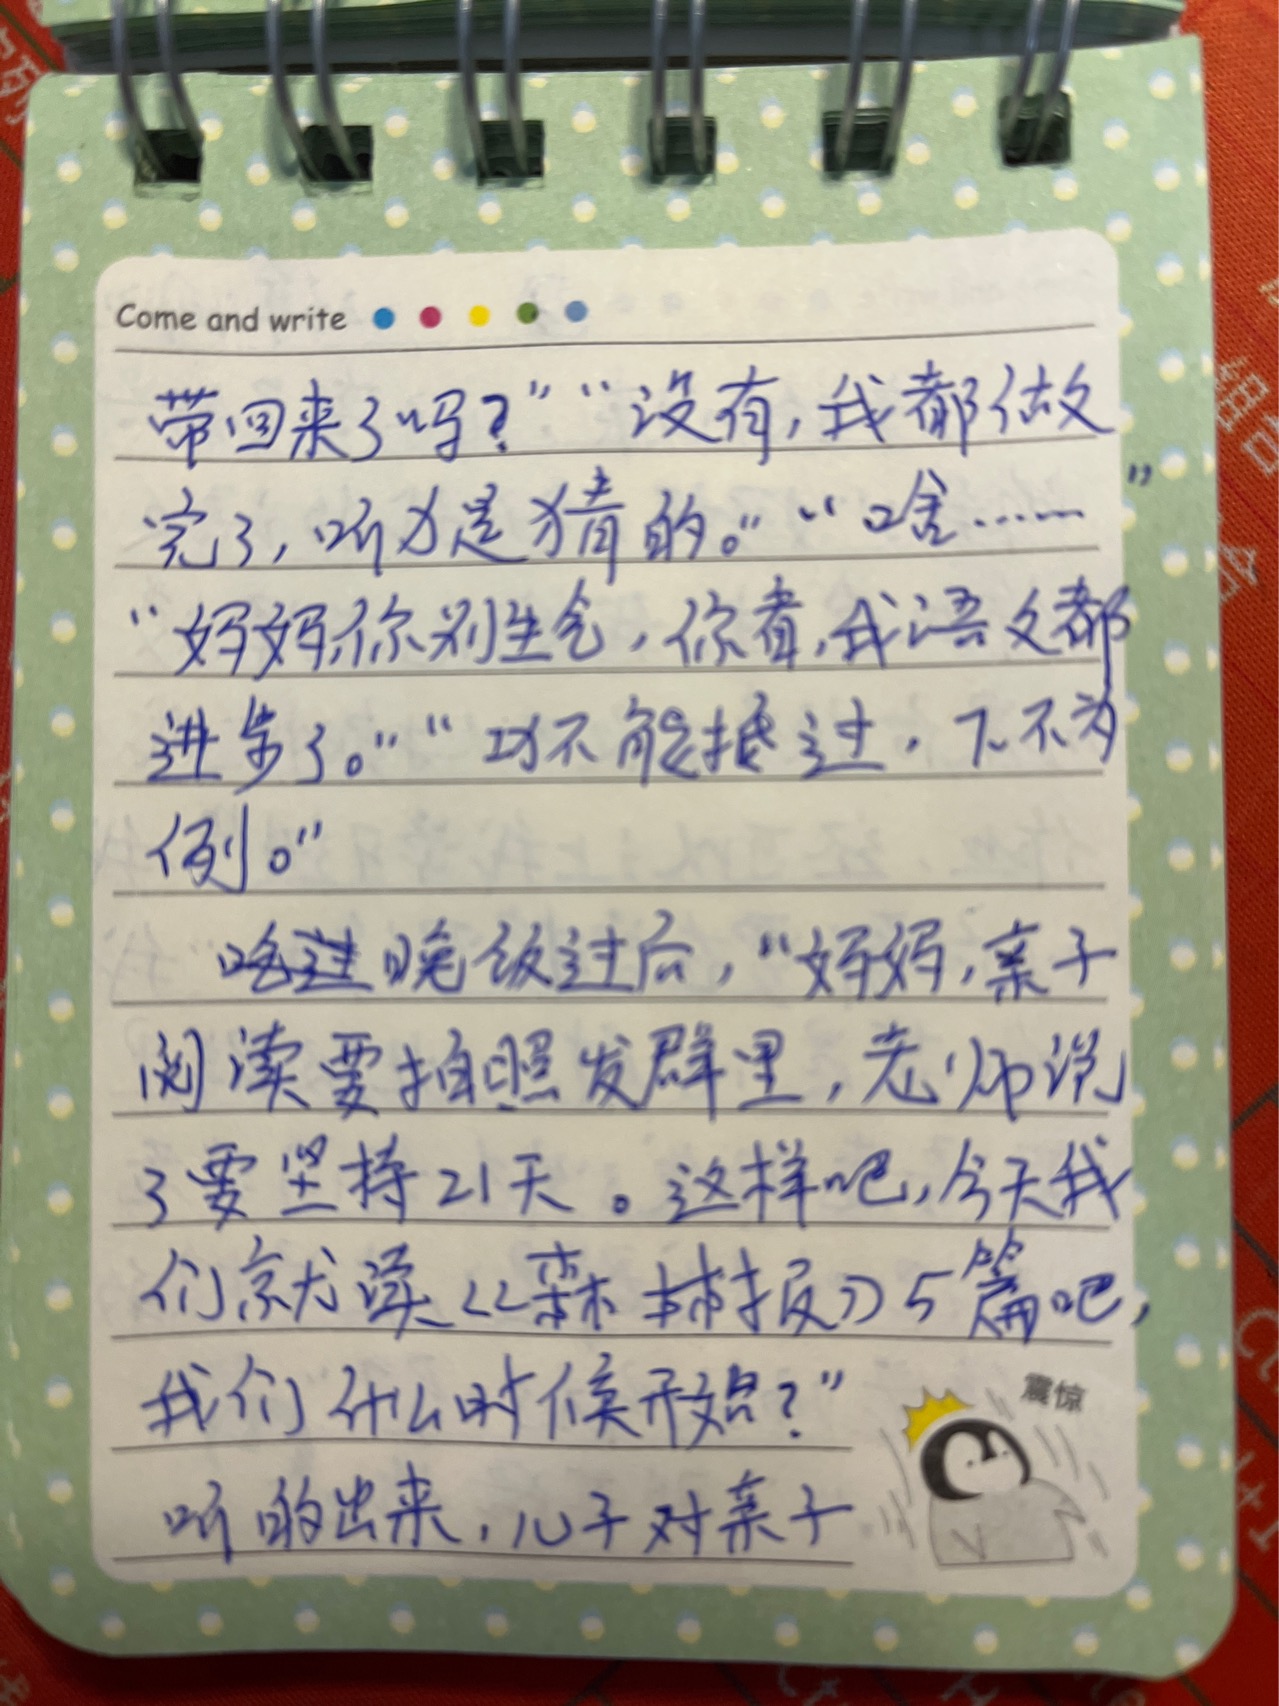 Come and write
带回来了吗？”“没有，我都做
完了，听力是猜的。”“啥……”
“妈妈，你别生气，你看，我语文都
进步了。”“功不能抵过，下不为
例。”
晚饭过后，“妈妈，亲子
阅读要拍照发群里，老师说
了要坚持21天。这样吧，今天我
们就读《森林报》5篇吧，
我们什么时候开始？”
震惊
听的出来，儿子对亲子